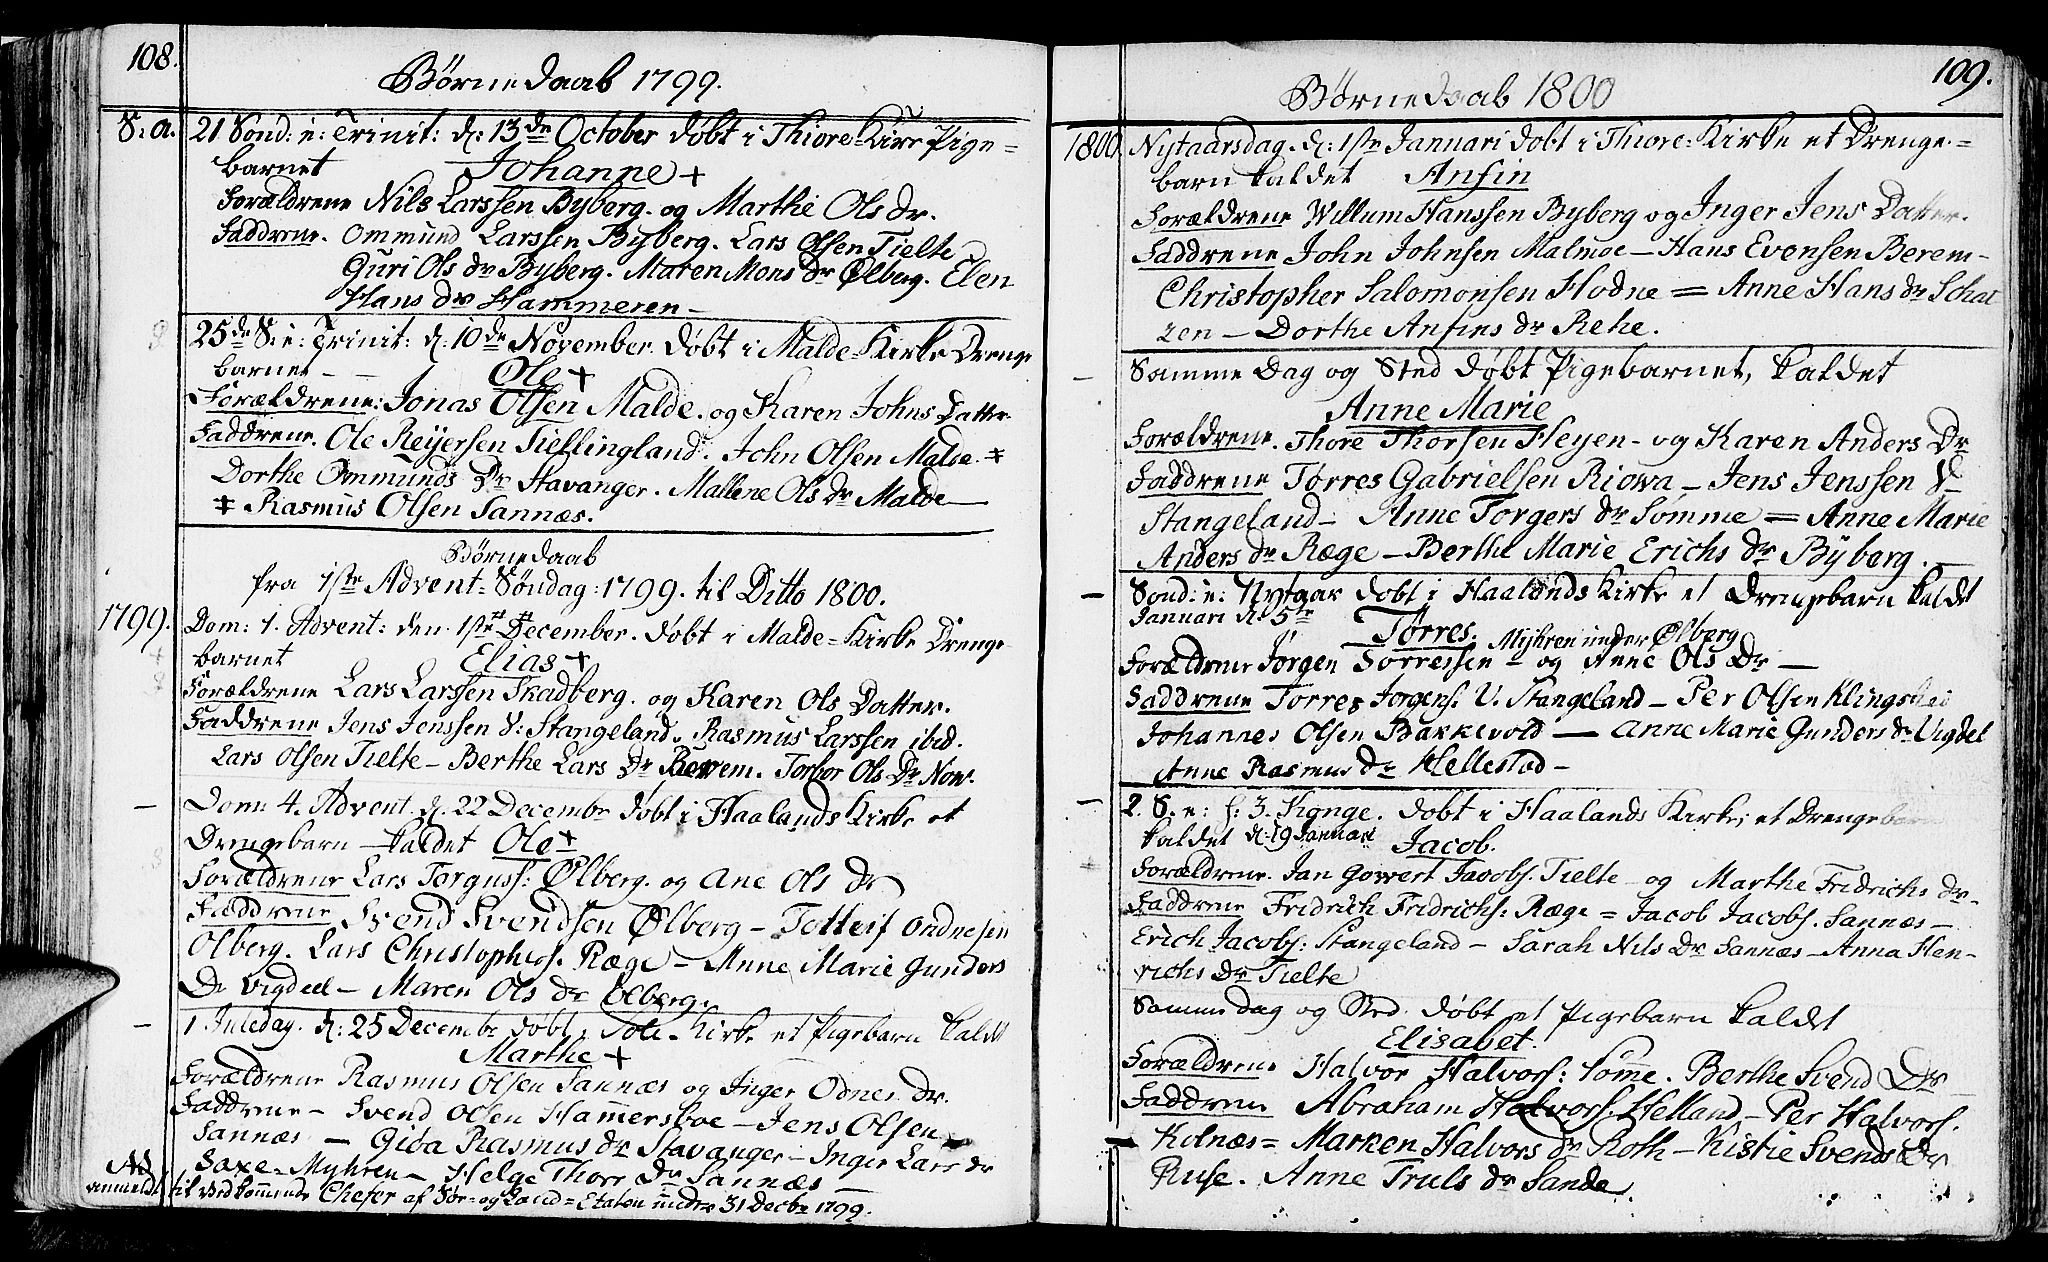 108.
Børne daab 1799.
S: a. 21 Sond: e: Trinit: d: 13de October døbt i Thiore-Kirke Pige=
barnet Johanne +
Forældrene Nils Larssen Byberg. og Marthe Ols Dr.
Faddrene. Ommund Larssen Byberg. Lars Olsen Tielte
Guri Ols dr Byberg. Maren Mons dr Ølberg. Elen
Hans dr Hammeren –
25de S: e: Trinit: d: 10de November. døbt i Malde-Kirke Drenge
barnet – – Ole +
Forældrene: Jonas Olsen Malde. og Karen Johns Datter
Faddrene. Ole Reyersen Tiellingland. John Olsen Malde. ‡
Dorthe Ommunds Dr Stavanger. Mallene Ols dr Malde –
‡ Rasmus Olsen Sannæs.
Børne daab
fra 1ste Advent-Søndag: 1799. til Ditto 1800.
1799. Dom: 1. Advent: den 1ste December. døbt i Malde-Kirke Drenge
barnet Elias +
Forældrene Lars Larssen Skadberg. og Karen Ols Datter.
Faddrene Jens Jenssen V: Stangeland. Rasmus Larssen ibid.
Lars Olsen Tielte – Berthe Lars Dr Berem. Torbor Ols Dr Now.
Dom: 4. Advent. d. 22 Decembr døbt i Haalands Kirke et
Drengebarn kaldet Ole +
Forældrene Lars Torguss: Ølberg. og Ane Ols Dr
Faddrene Svend Svendsen Ølberg – Totleif Ondresen
Ølberg. Lars Christophers. Ræge – Anne Marie Gunders
Dr Vigdeel – Maren Ols dr Ølberg.
1. Juledag. d: 25 Decembr døbt i Sole Kirke et Pigebarn kaldet
Marthe +
Forældrene Rasmus Olsen Sannæs og Inger Odnes Dr.
Faddrene – Svend Olsen Hammersboe – Jens Olsen
Sannæs – Giøa Rasmus dr Stavanger – Inger Lars dr
Saxe-Myhren – Helge Thors Dr Sannæs
anmeldt til vedkommende Chefer af Søe- og Land-Etaten under 31 Decbr 1799.
109.
Børne daab 1800
1800. Nytaarsdag. d: 1ste Januari døbt i Thiore-Kirke et Drenge-
barn kaldet Ansin
Forældrene Willum Hanssen Byberg og Inger Jens Datter.
Faddrene John Johnsen Malmoe – Hans Evensen Berem –
Christopher Salomonsen Hodne = Anne Hans dr Schat
zen – Dorthe Ansins dr Rehe.
– Samme Dag og Sted døbt Pigebarnet, kaldet
Anne Marie
Forældrene. Thore Thorsen Heyen – og Karen Anders Dr
Faddrene Tørres Gabrielsen Riowa – Jens Jenssen V
Stangeland – Anne Torgers dr Somme = Anne Marie
Anders dr Ræge – Berthe Marie Erichs dr Byberg.
– Sond: e: Nytaar døbt i Haalands Kirke et Drengebarn kaldet
Januari d. 5te Tørres. Myhren under Ølberg
Forældrene Jørgen Torressen – og Anne Ols Dr –
Faddrene Torres Jorgens: V. Stangeland – Per Olsen Klingshei
Johannes Olsen Bakkevold – Anne Marie Gunders dr Vigdel
Anne Rasmus dr Hellestad –
– 2. S. e: h: 3. Konge. døbt i Haalands Kirke, et Drengebarn
kaldet d: 19 Januari Jacob.
Forældrene. Jan Gowert Jacobs. Tielte – og Marthe Fridrichs dr.
Faddrene Fridrich Fridrichs: Ræge = Jacob Jacobs. Sannæs –
Erich Jacobs: Stangeland – Sarah Nils Dr Sannæs – Anna Hen-
richs Dr Tielte
Samme dag og Sted døbt et Pigebarn kaldet
Elisabet.
Forældrene Halvor Halvors: Somme. Berthe Svend Dr
Faddrene Abraham Halvors. Helland – Per Halvors.
Kolnæs = Marken Halvors dr Roth – Kistie Svends Dr
Ruse. Anne Truls dr Sande.